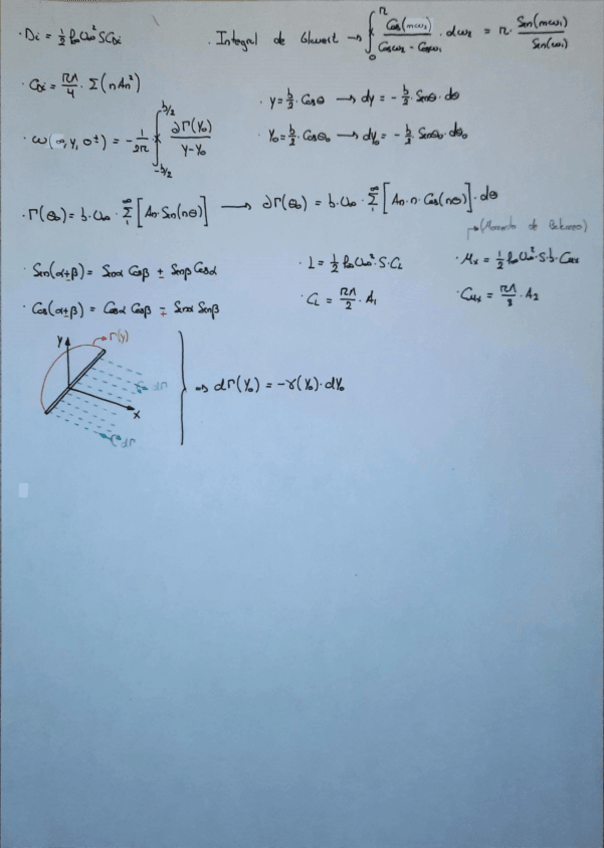 · Di = 1/2 ρ∞ U∞² S CDi
· Integral de Glauert → ∫₀^π Cos(mω₂) / (Cosω₂ - Cosω₁) · dω₂ = π · Sen(mω₁) / Sen(ω₁)
· CDi = πΛ/4 · Σ(nAn²)
· y = b/2 · Cosθ → dy = - b/2 · Senθ · dθ
· ω(∞, y, 0±) = - 1/2π ∫_{-b/2}^{b/2} ∂Γ(y₀) / (y - y₀)
· y₀ = b/2 · Cosθ₀ → dy₀ = - b/2 · Senθ₀ · dθ₀
· Γ(θ₀) = b · U∞ · Σ₁^∞ [An · Sen(nθ)] → ∂Γ(θ₀) = b · U∞ · Σ₁^∞ [An · n · Cos(nθ)] · dθ
(Momento de Balanceo)
· Sen(α±β) = Senα Cosβ ± Senβ Cosα
· L = 1/2 ρ∞ U∞² · S · CL
· Mx = 1/2 ρ∞ U∞² · S · b · CMx
· Cos(α±β) = Cosα Cosβ ∓ Senα Senβ
· CL = πΛ/2 · A₁
· CMx = πΛ/8 · A₂
y
Γ(y)
dΓ
x
dΓ
⇒ dΓ(y₀) = -γ(y₀) · dy₀